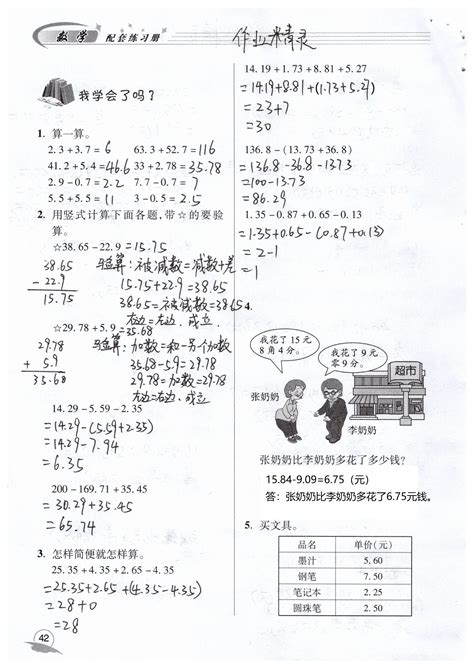 数学 配套练习册
作业精灵
我学会了吗?
1. 算一算。
2.3+3.7= 6 63.3+52.7= 116
41.2+5.4= 46.6 33+2.78= 35.78
2.9-0.7= 2.2 7.7-0.7= 7
5.5+5.5= 11 3-0.5= 2.5
2. 用竖式计算下面各题,带☆的要验
算。
☆38.65-22.9 = 15.75
38.65
- 22.9
15.75
验算:被减数=减数+差
15.75+22.9=38.65
38.65=被减数=38.65
左边=右边,成立.
☆29.78+5.9 = 35.68
29.78
+ 5.9
35.68
验算:加数=和-另个加数
35.68-5.9=29.78
29.78=加数=29.78
左边=右边,成立
14.29-5.59-2.35
=14.29-(5.59+2.35)
=14.29-7.94
=6.35
200-169.71+35.45
=30.29+35.45
=65.74
3. 怎样简便就怎样算。
25.35+4.35+2.65-4.35
=25.35+2.65+(4.35-4.35)
=28+0
=28
42
14.19+1.73+8.81+5.27
=14.19+8.81+(1.73+5.27)
=23+7
=30
136.8-(13.73+36.8)
=136.8-36.8-13.73
=100-13.73
=86.29
1.35-0.87+0.65-0.13
=1.35+0.65-(0.87+0.13)
=2-1
=1
4.
我花了15元
8角4分。
我花了9元
零9分。
超市
张奶奶
李奶奶
张奶奶比李奶奶多花了多少钱?
15.84-9.09=6.75 (元)
答:张奶奶比李奶奶多花了6.75元钱。
5. 买文具。
品名 单价(元)
墨汁 5.60
钢笔 7.50
笔记本 2.25
圆珠笔 2.50